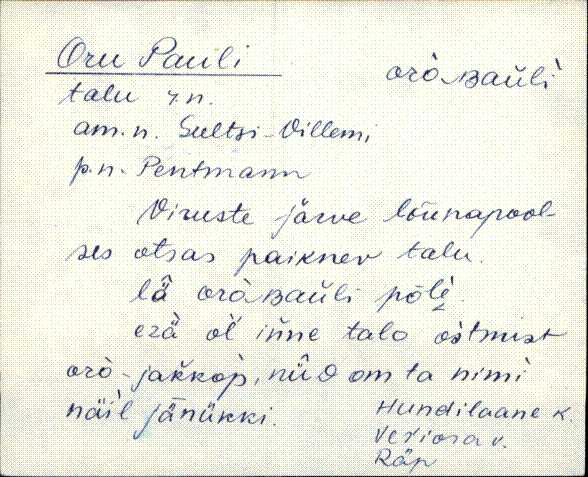 Oru Pauli
orò ʙaŭli
talu r.n.
am.n. Sultsi-Villemi
p.n. Pentmann
Viruste järve lõunapool-
ses otsas paiknev talu.
lä̀ orò ʙaŭli põlè.
erä̀ ol iñne talo ostmist
orò-jaǩkop, nǖᴅ om ta nimi
näil jänükki.
Hundilaane k.
Veriora v.
Räp